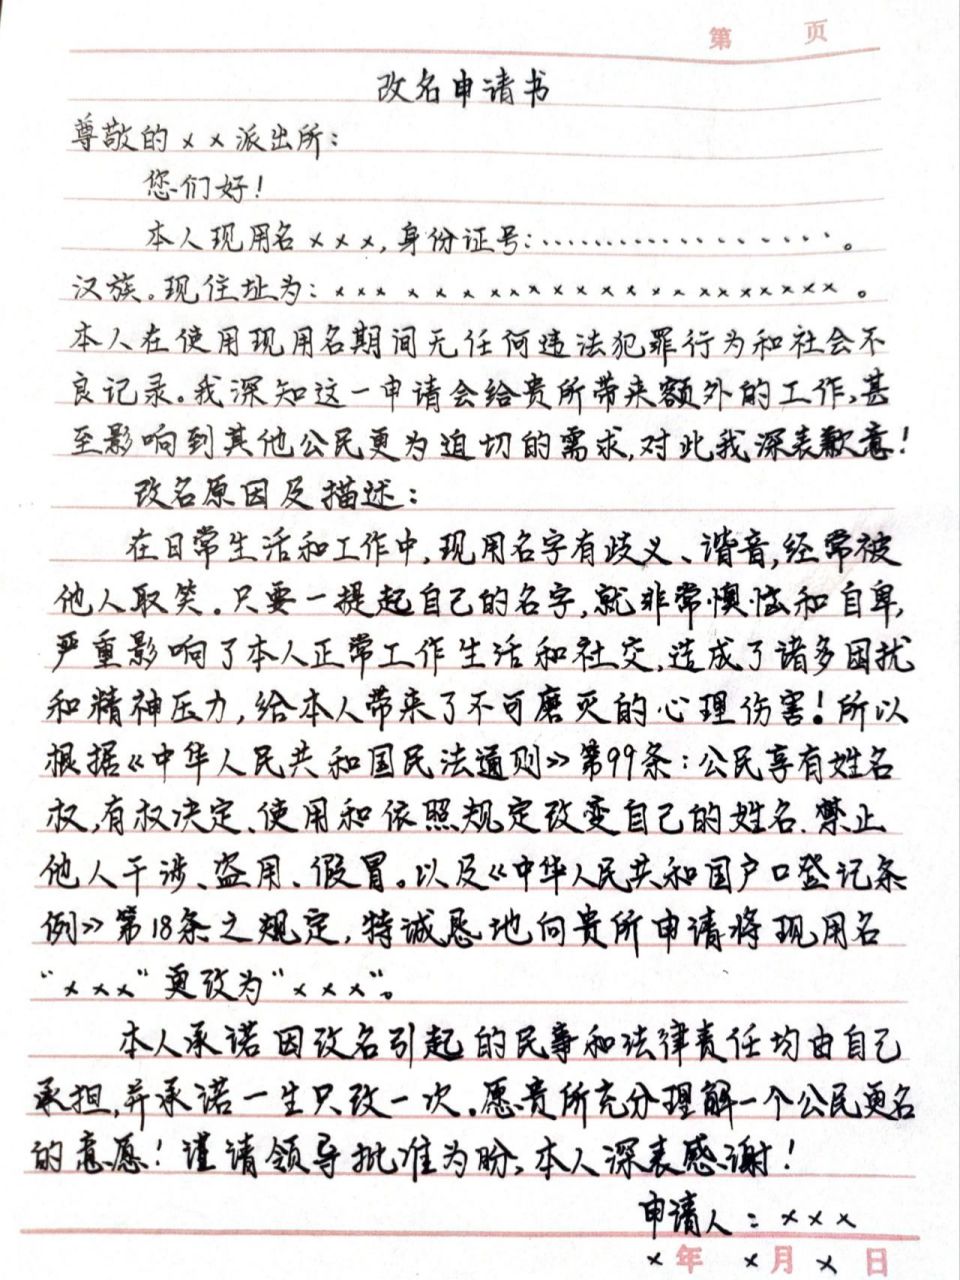 第 页
改名申请书
尊敬的××派出所：
您们好！
本人现用名×××，身份证号：………………。
汉族。现住址为：×××××××××××××××××××××。
本人在使用现用名期间无任何违法犯罪行为和社会不
良记录。我深知这一申请会给贵所带来额外的工作，甚
至影响到其他公民更为迫切的需求，对此我深表歉意！
改名原因及描述：
在日常生活和工作中，现用名字有歧义、谐音，经常被
他人取笑。只要一提起自己的名字，就非常懊恼和自卑，
严重影响了本人正常工作生活和社交，造成了诸多困扰
和精神压力，给本人带来了不可磨灭的心理伤害！所以
根据《中华人民共和国民法通则》第99条：公民享有姓名
权，有权决定、使用和依照规定改变自己的姓名.禁止
他人干涉、盗用、假冒。以及《中华人民共和国户口登记条
例》第18条之规定，特诚恳地向贵所申请将现用名
“×××”更改为“×××”。
本人承诺因改名引起的民事和法律责任均由自己
承担，并承诺一生只改一次。愿贵所充分理解一个公民更名
的意愿！谨请领导批准为盼，本人深表感谢！
申请人：×××
×年 ×月×日